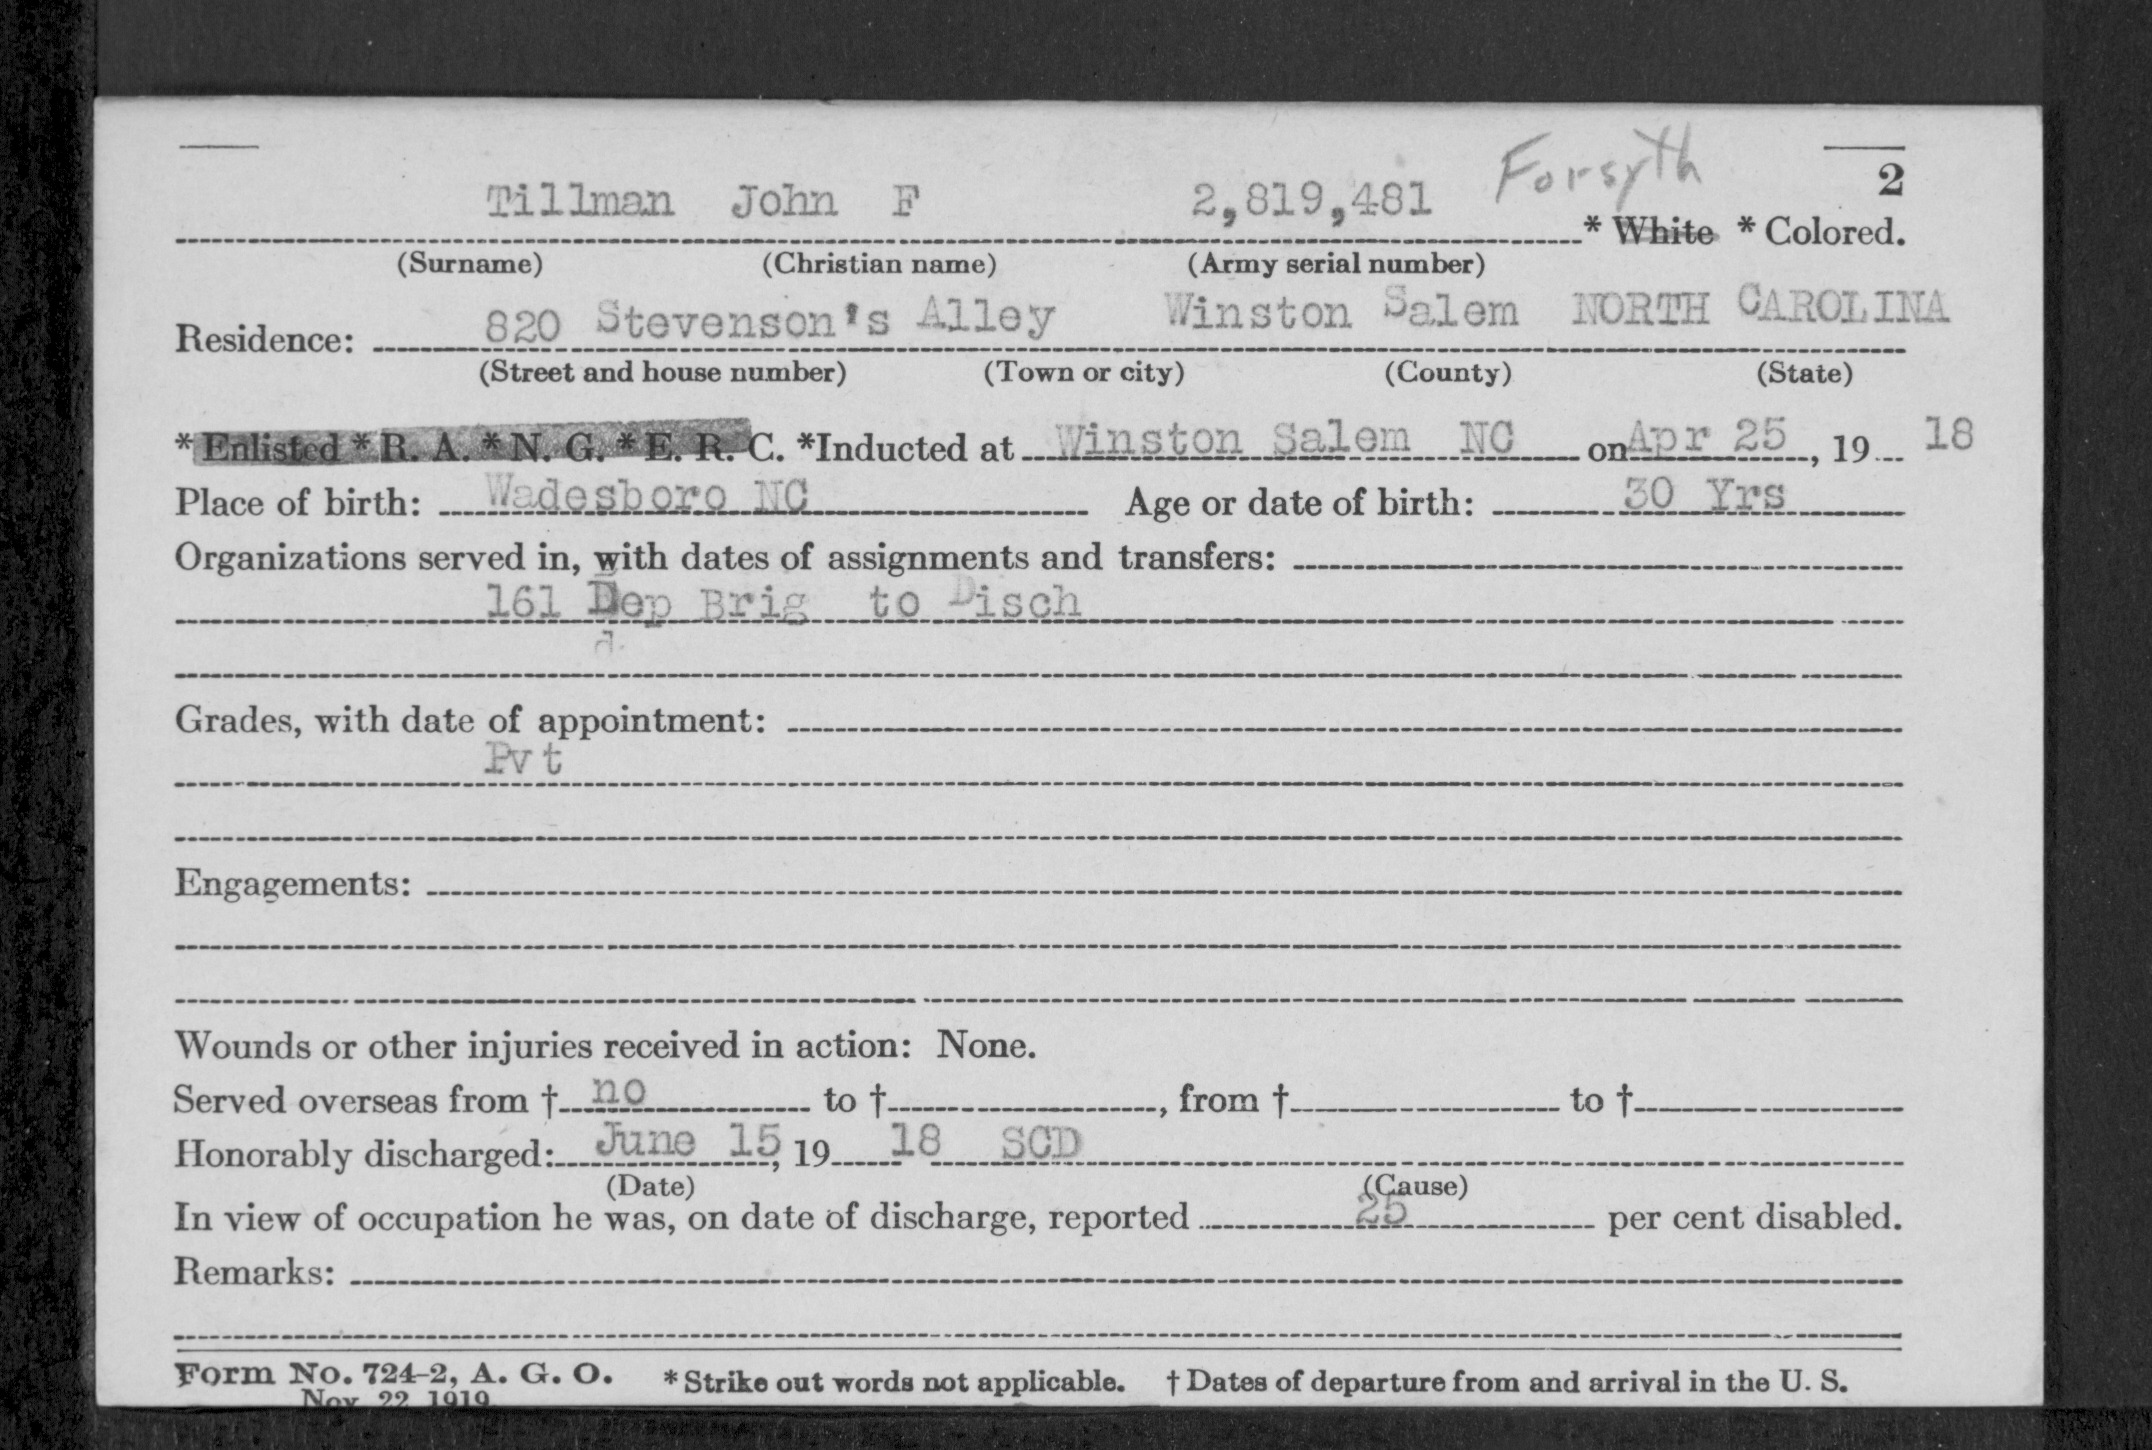 Forsyth
2
Tillman John F 2,819,481 * White * Colored.
(Surname) (Christian name) (Army serial number)
Residence: 820 Stevenson's Alley Winston Salem NORTH CAROLINA
(Street and house number) (Town or city) (County) (State)
* Enlisted * R. A. * N. G. * E. R. C. *Inducted at Winston Salem NC on Apr 25, 19 18
Place of birth: Wadesboro NC Age or date of birth: 30 Yrs
Organizations served in, with dates of assignments and transfers:
161 Dep Brig to Disch
d.
Grades, with date of appointment:
Pvt
Engagements:
Wounds or other injuries received in action: None.
Served overseas from † no to †, from † to †
Honorably discharged: June 15, 19 18 SCD
(Date) (Cause)
In view of occupation he was, on date of discharge, reported 25 per cent disabled.
Remarks:
Form No. 724-2, A. G. O. * Strike out words not applicable. † Dates of departure from and arrival in the U. S.
Nov. 22, 1919.